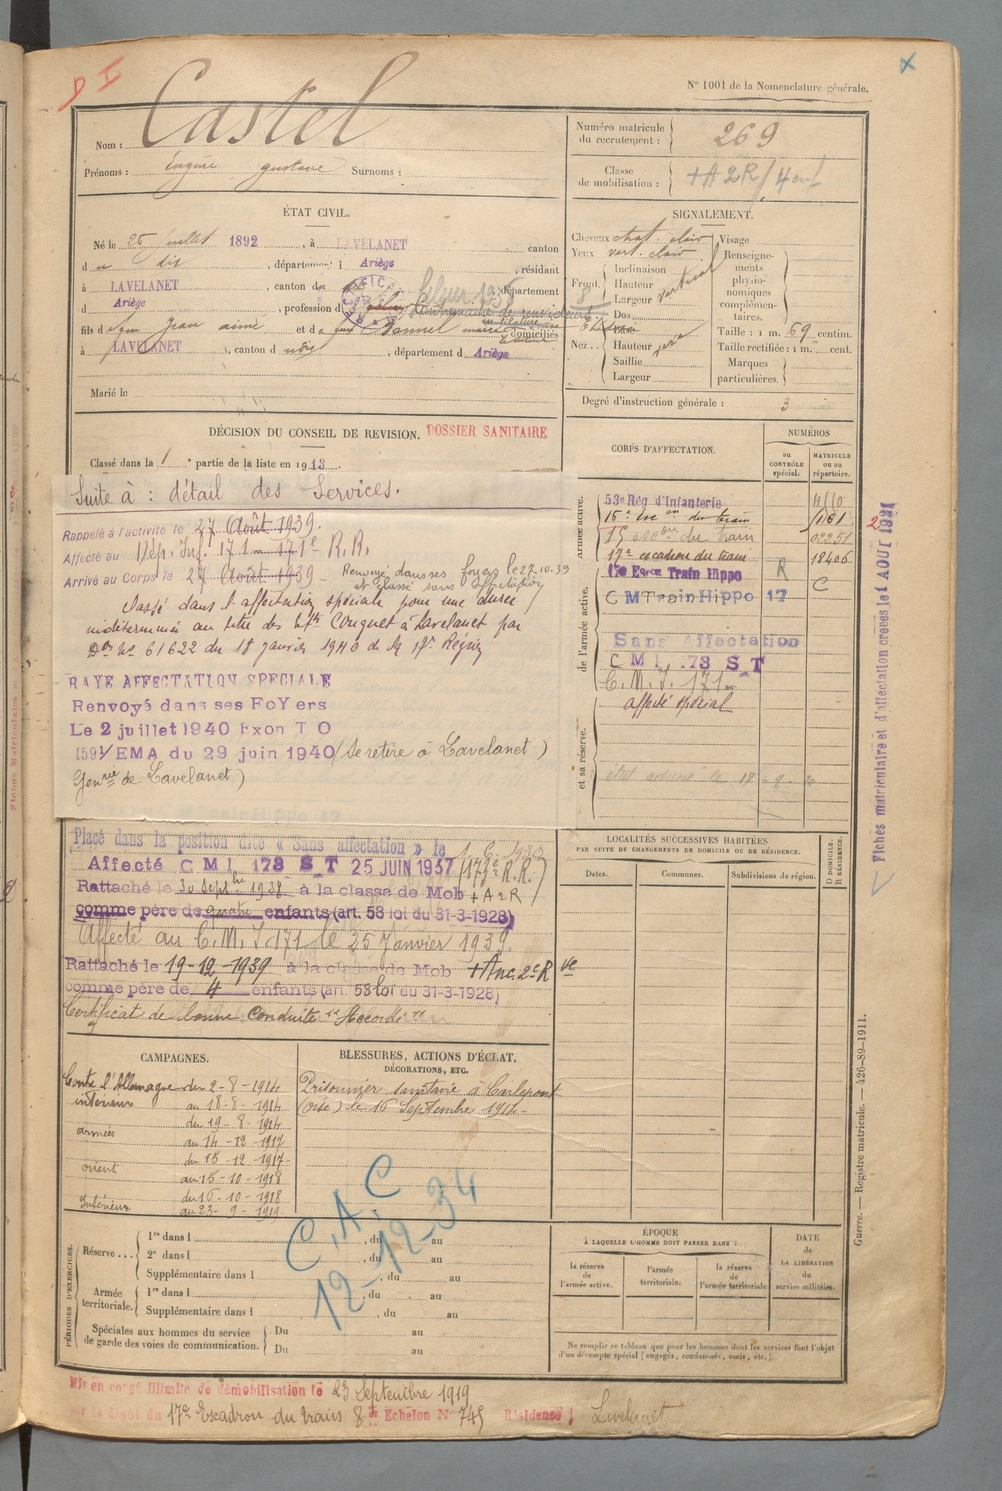 N° 1001 de la Nomenclature générale.
Nom : Castel
Prénoms : Eugène Gustave Surnoms :
Numéro matricule du recrutement : 269
Classe de mobilisation : + A 2 R / 4 enf
ÉTAT CIVIL.
Né le 25 juillet 1892, à LAVELANET canton
d u dis, département d Ariège, résidant
à LAVELANET, canton de département
d Ariège, profession d
fils d feu Jean aimé et d domiciliés
à LAVELANET, canton d udis, département d Ariège
Marié le
SIGNALEMENT.
Cheveux chat. clair
Yeux vert. clair
Front.
Inclinaison
Hauteur
Largeur
Nez..
Dos
Base
Hauteur
Saillie
Largeur
Visage
Renseignements physionomiques complémentaires.
Taille : 1 m. 69 centim.
Taille rectifiée : 1 m. cent.
Marques particulières.
Degré d'instruction générale : 3
DÉCISION DU CONSEIL DE REVISION. DOSSIER SANITAIRE
Classé dans la 1 e partie de la liste en 1913.
Suite à : détail des Services.
Rappelé à l'activité le 27 Août 1939.
Affecté au Dép. Inf. 171 - 171e R.R.
Arrivé au Corps le 27 Août 1939 -
Renvoyé dans ses foyers le 27-10-39
et classé sans affectation
Passé dans l'affectation spéciale pour une durée
indéterminée au titre des Ets Couquet à Lavelanet par
Don No 61622 du 18 janvier 1940 de la 17e Région
RAYE AFFECTATION SPECIALE
Renvoyé dans ses FoYers
Le 2 juillet 1940 Exon T O
1591/EMA du 29 juin 1940 (se retire à Lavelanet)
Genrie de Lavelanet)
Placé dans la position dite « Sans affectation » le
Affecté C M I 173 S T 25 JUIN 1937 (173e R.R.)
Rattaché le 30 Septbre 1938 à la classe de Mob + A 2 R
comme père de quatre enfants (art. 58 loi du 31-3-1928)
Affecté au C.M.I 171 le 25 Janvier 1939.
Rattaché le 19-12-1939 à la classe de Mob + Anc. 2e R ve
comme père de 4 enfants (art. 58 loi du 31-3-1928)
Certificat de bonne Conduite "Accordé"
CORPS D'AFFECTATION.
NUMÉROS
au CONTRÔLE spécial.
MATRICULE ou au répertoire.
Armée active.
53e Rég d'Infanterie
16e Escon du train
17e escadron du train
17e Escon Train Hippo R
C M Train Hippo 17 C
de l'armée active.
Sans Affectation
C M I 173 S T
C. M. I. 171
affecté spécial
et sa réserve.
Fiches matriculaire et d'affectation créées le 1 AOUT 1921
LOCALITÉS SUCCESSIVES HABITÉES
PAR SUITE DE CHANGEMENTS DE DOMICILE OU DE RÉSIDENCE.
Dates.
Communes.
Subdivisions de région.
D DOMICILE.
R RÉSIDENCE.
CAMPAGNES.
Contre l'Allemagne du 2-8-1914
intérieur au 18-8-1914
du 19-8-1914
armées au 14-12-1917
du 15-12-1917
orient au 15-10-1918
du 16-10-1918
Intérieur au 23-9-1919
BLESSURES, ACTIONS D'ÉCLAT,
DÉCORATIONS, ETC.
Prisonnier sanitaire à Carlepont
(Oise) le 16 Septembre 1914-
C.A.C
12-12-34
PÉRIODES D'EXERCICES.
Réserve...
1re dans l , du au
2e dans l , du au
Supplémentaire dans l , du au
Armée territoriale.
1re dans l , du au
Supplémentaire dans l , du au
Spéciales aux hommes du service de garde des voies de communication.
Du au
Du au
ÉPOQUE
À LAQUELLE L'HOMME DOIT PASSER DANS :
la réserve de l'armée active.
l'armée territoriale.
la réserve de l'armée territoriale
DATE DE LA LIBÉRATION du service militaire.
Ne remplir ce tableau que pour les hommes dont les services font l'objet
d'un décompte spécial (engagés, condamnés, omis, etc.).
Guerre. — Registre matricule. — 426-89-1911.
Mis en congé illimité de démobilisation le 23 Septembre 1919
par le dépôt du 17e Escadron du train 8e Echelon No 745 Résidence : Lavelanet